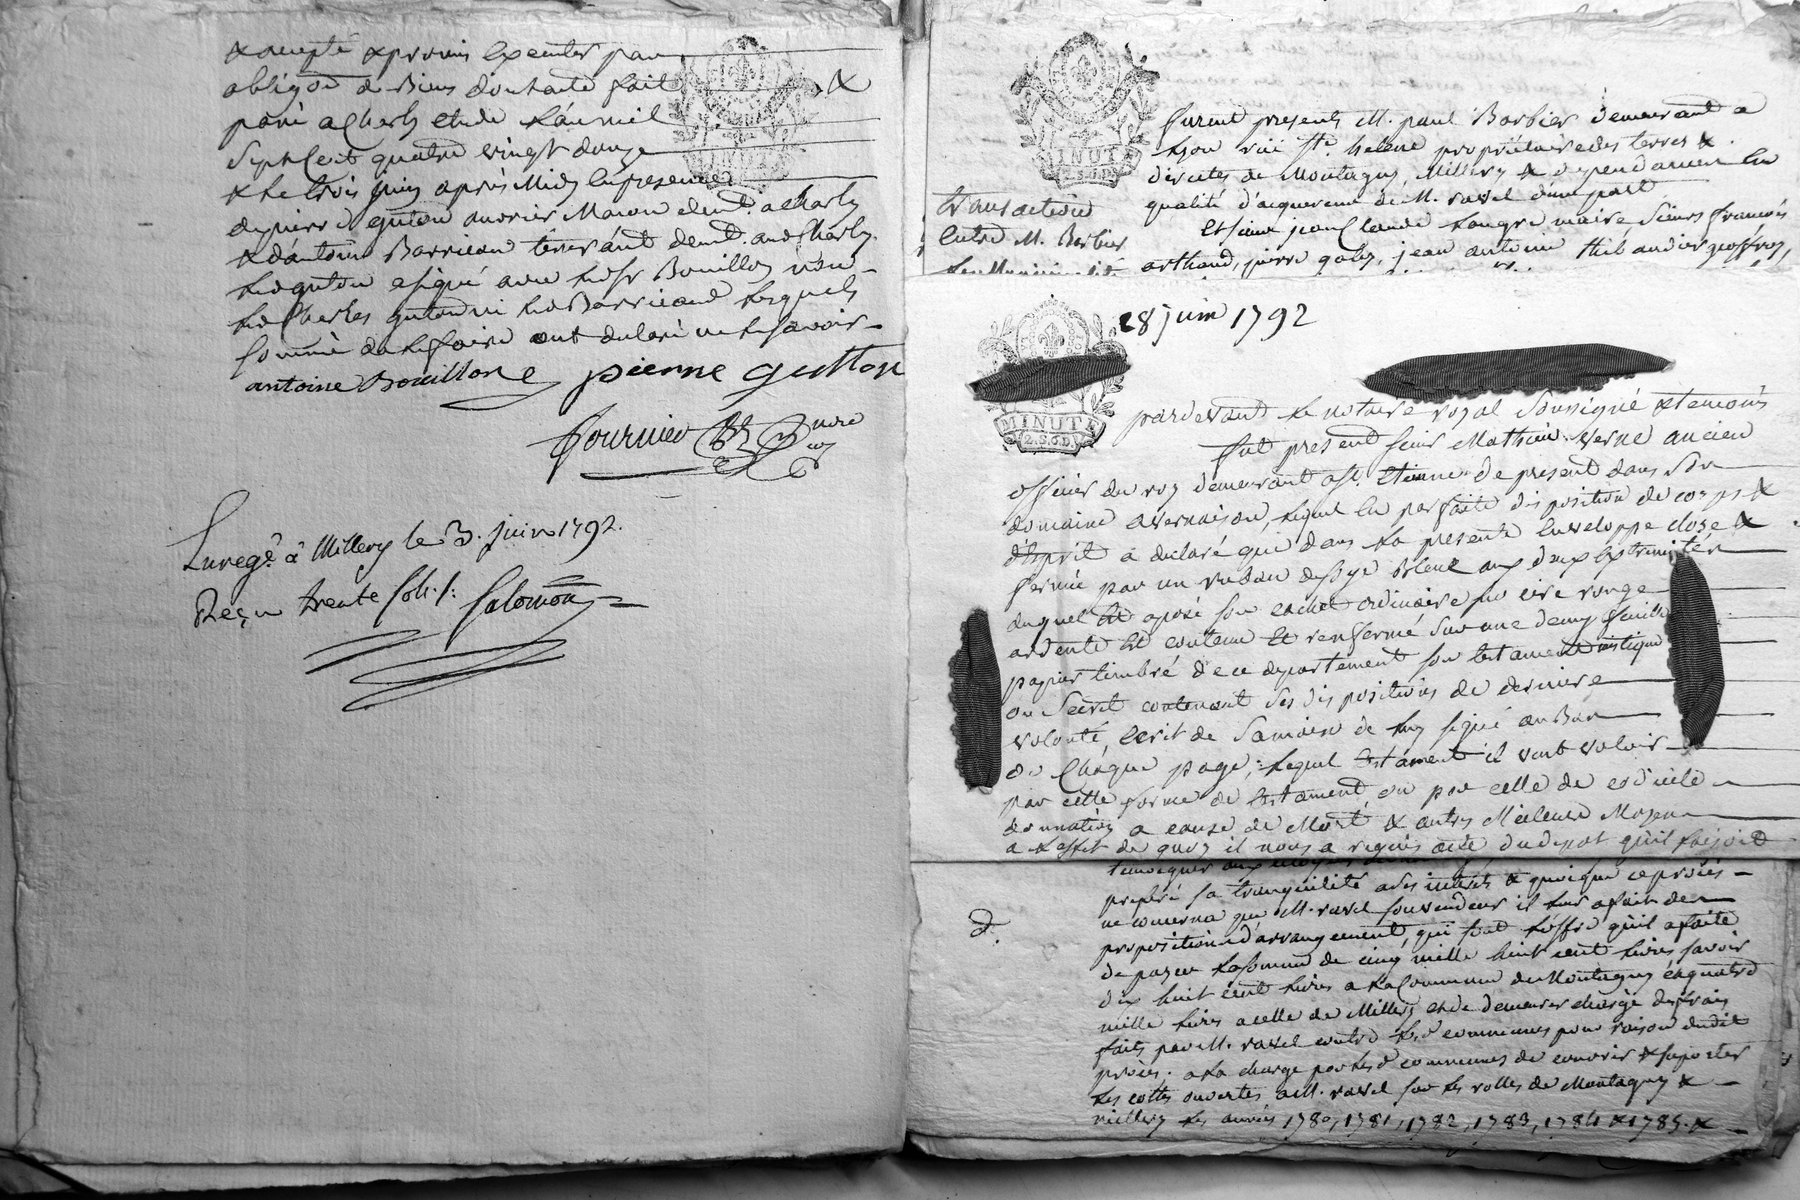 & accepté & promis executer par
obligãon de Biens dont acte fait
passé a Charly etude l'an mil
sept Cent quatre vingt douze
& le trois juin après Midy En presence
de pierre gutton ouvrier Maçon demt. a Charly
& d'antoine Barricau demt. audt Charly
led gutton a signé avec led sr Bouillon non
led Charles gutton ni led Barricaud Lesquels
sommé de le faire ont declaré ne le savoir
antoine Bouillon pierre gutton
fournier nore
Enregé. à Millery le 3. juin 1792.
Reçu trente sols
Salomon
MINUTE
2.S.6D.
furent presents M. paul Barbier demeurant a
Lyon rüe Ste helene propriétaire des terres &
directes de Montagny, Millery & dependances En
qualité d'acquereur de M. ravel d'une part
Et sieur jean Claude maire, Sieurs françois
arthaud, pierre jean antoine thibaudier
transaction
Entre M. Barbier
28 juin 1792
MINUTE
2.S.6D.
pardevant Le notaire royal soussigné & temoins
fut present sieur Mathieu Verne ancien
officier du roy demeurant a st. Etienne de present dans son
domaine a vernaison, lequel En parfaite disposition de corps &
d'Esprit a declaré que dans La presente Enveloppe close &
fermée par un ruban de soye Bleue aux deux Extremités
duquel Est aposé son cachet ordinaire sur cire rouge
ardente Est contenu Et renfermé sur une demy feuille
papier timbré de ce departement son testament mistique
ou Secret contenant ses dispositions de derniere
volonté, Ecrit de sa main de luy signé au Bas
de Chaque page; Lequel testament il veut valoir
par cette forme de testament, ou par celle de codicile
donnation a cause de Mort & autre Meilleure Moyen
a L'effet de quoy il nous a requis acte du depot qu'il faisoit
preferé sa tranquilité a ses interets & quoique ce procès
ne concerna que M. ravel son vendeur il leur a fait des
propositions d'arrangement, qui sont L'offre qu'il a faite
de payer La somme de cinq mille huit cent Livres savoir
dix huit cent Livres a La Commune de Montagny & quatre
mille Livres a celle de Millery et de demeurer chargé des frais
faits par M. ravel contre Les d communes pour raison dudit
procès. a La charge par Les d communes de couvrir & suporter
Les cottes ouvertes a M. ravel sur Les rolles de Montagny &
millery Les années 1780, 1781, 1782, 1783, 1784 & 1785. &